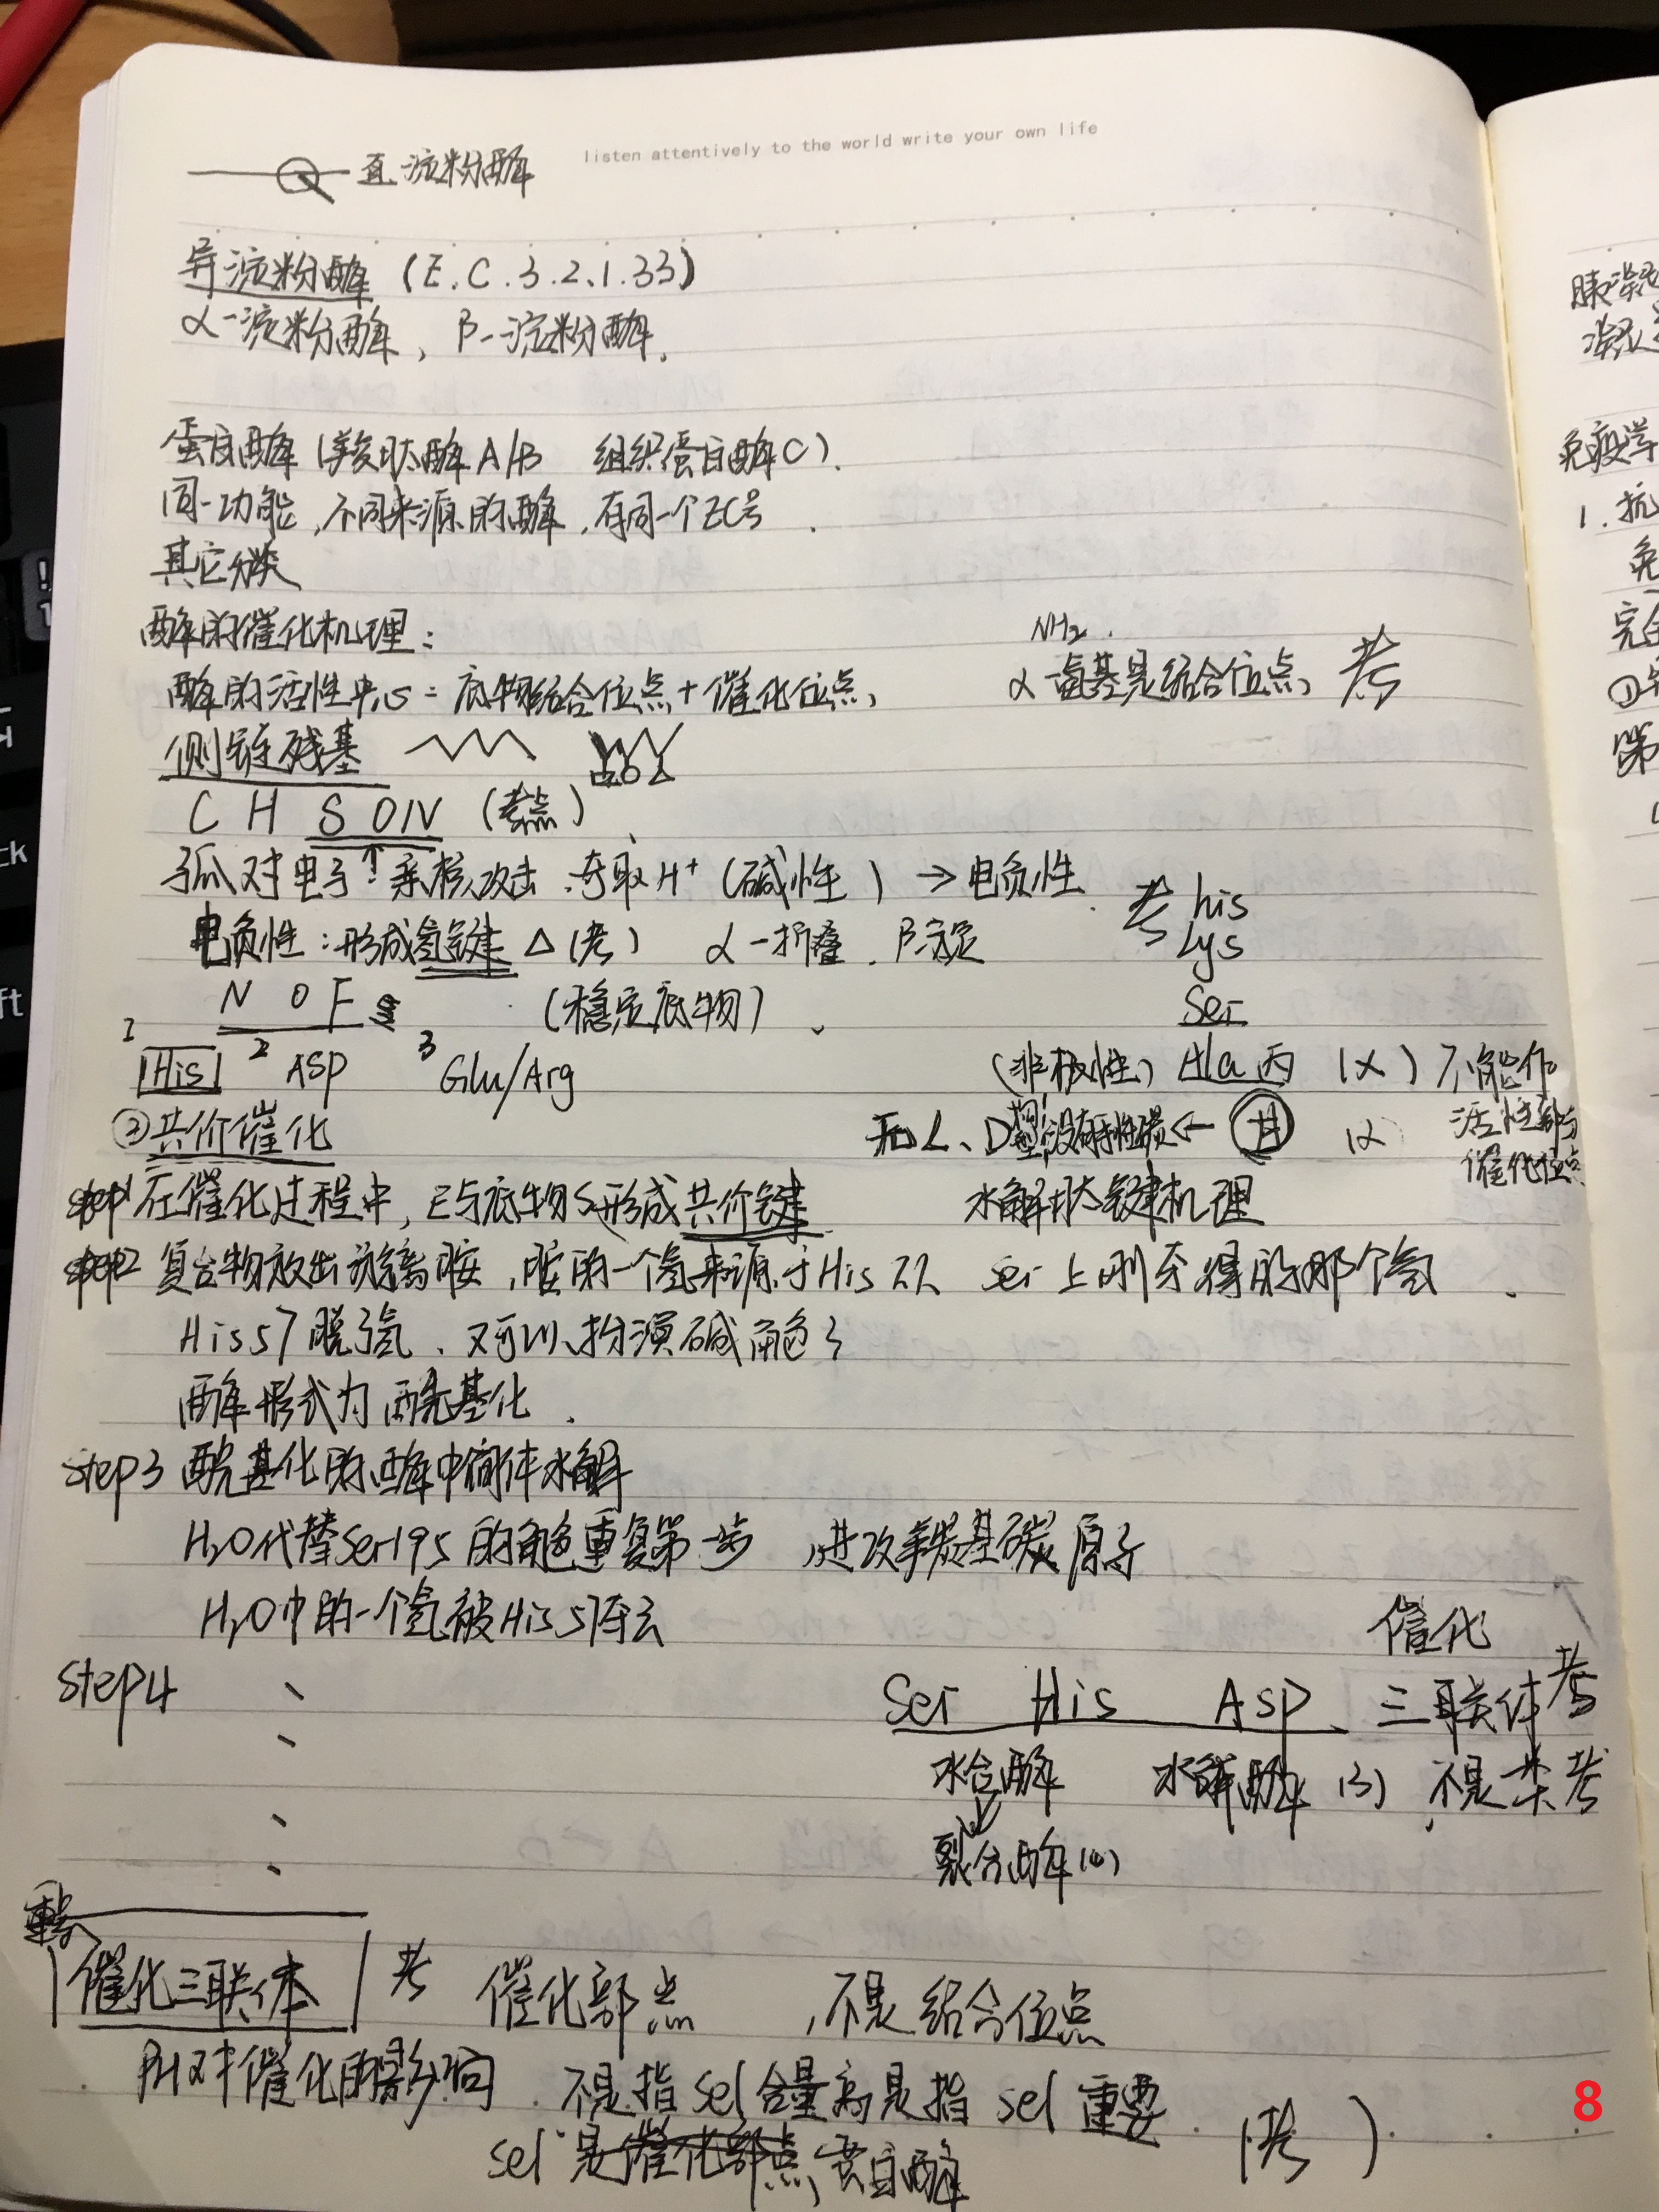 listen attentively to the world write your own life
直淀粉酶
异淀粉酶 (E.C.3.2.1.33)
α-淀粉酶, β-淀粉酶.
蛋白酶 (羧肽酶A/B 组织蛋白酶C).
同一功能, 不同来源的酶, 有同一个EC号.
其它分类
酶的催化机理:
NH2.
酶的活性中心 = 底物结合位点+催化位点, α-氨基是结合位点, 考
侧链残基
C H S O N (考点)
孤对电子↑亲核攻击.夺取H+ (碱性) → 电负性
电负性: 形成氢键 △ (考) α-折叠. β 考 his
Lys
N O F (稳定底物). Ser
1 His 2 ASP 3 Glu/Arg (非极性) Ala 丙 (X) 不能作
活性部分
催化位点
②共价催化 无L、D型,没有手性碳← H
step1 在催化过程中, E与底物S形成共价键 水解肽键机理
step2 复合物放出游离胺, 胺的一个氢来源于His 从 ser上刚夺得的那个氢.
His57脱了氢、又可以扮演碱角色了
酶形式为酰基化.
step3 酰基化的酶中间体水解
H2O代替Ser195的角色重复第一步, 进攻羰基碳原子
H2O中的一个氢被His57夺去
催化
step4 Ser His Asp. 三联体 考
水合酶 水解酶 (3) 不是一类 考
裂分酶(4)
催化三联体 考 催化部点, 不是结合位点
PH对催化的影响. 不是指sel含量高是指sel重要. (考)
sel 是催化部点 蛋白酶
8
胰凝
凝
免疫学
1.抗
免
完全
①
第